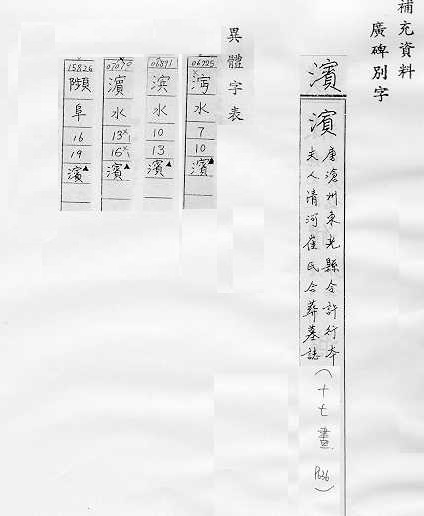 補充資料
廣碑別字
濱
濱
唐滄州東光縣令許行本
夫人清河崔氏合葬墓誌
(十七畫 P636)
異體字表
06225
水
7
10
濱▲
06891
滨
水
10
13
濱▲
07070
濵
水
13
16
濱▲
15826
阜
16
19
濱▲